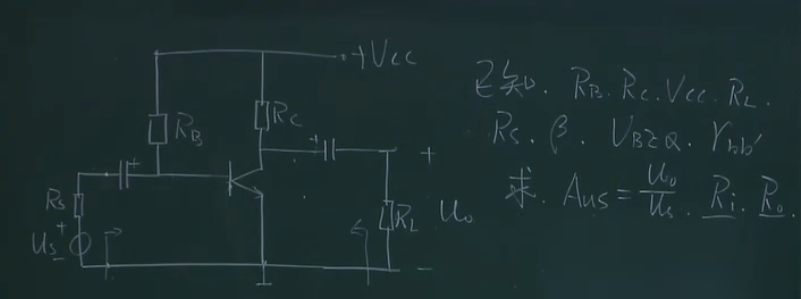 +Vcc
RB
Rc
Rs
Us
+
-
+
+
+
RL
Uo
-
已知. RB. Rc. Vcc. RL.
Rs. β. UBEQ. rbb'
求. Aus = Uo/Us. Ri. Ro.